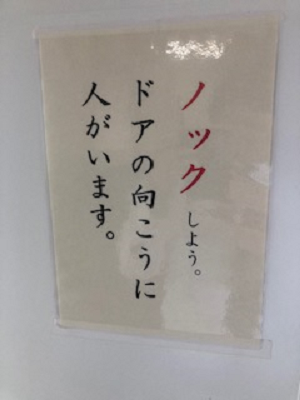 ノックしよう。
ドアの向こうに
人がいます。